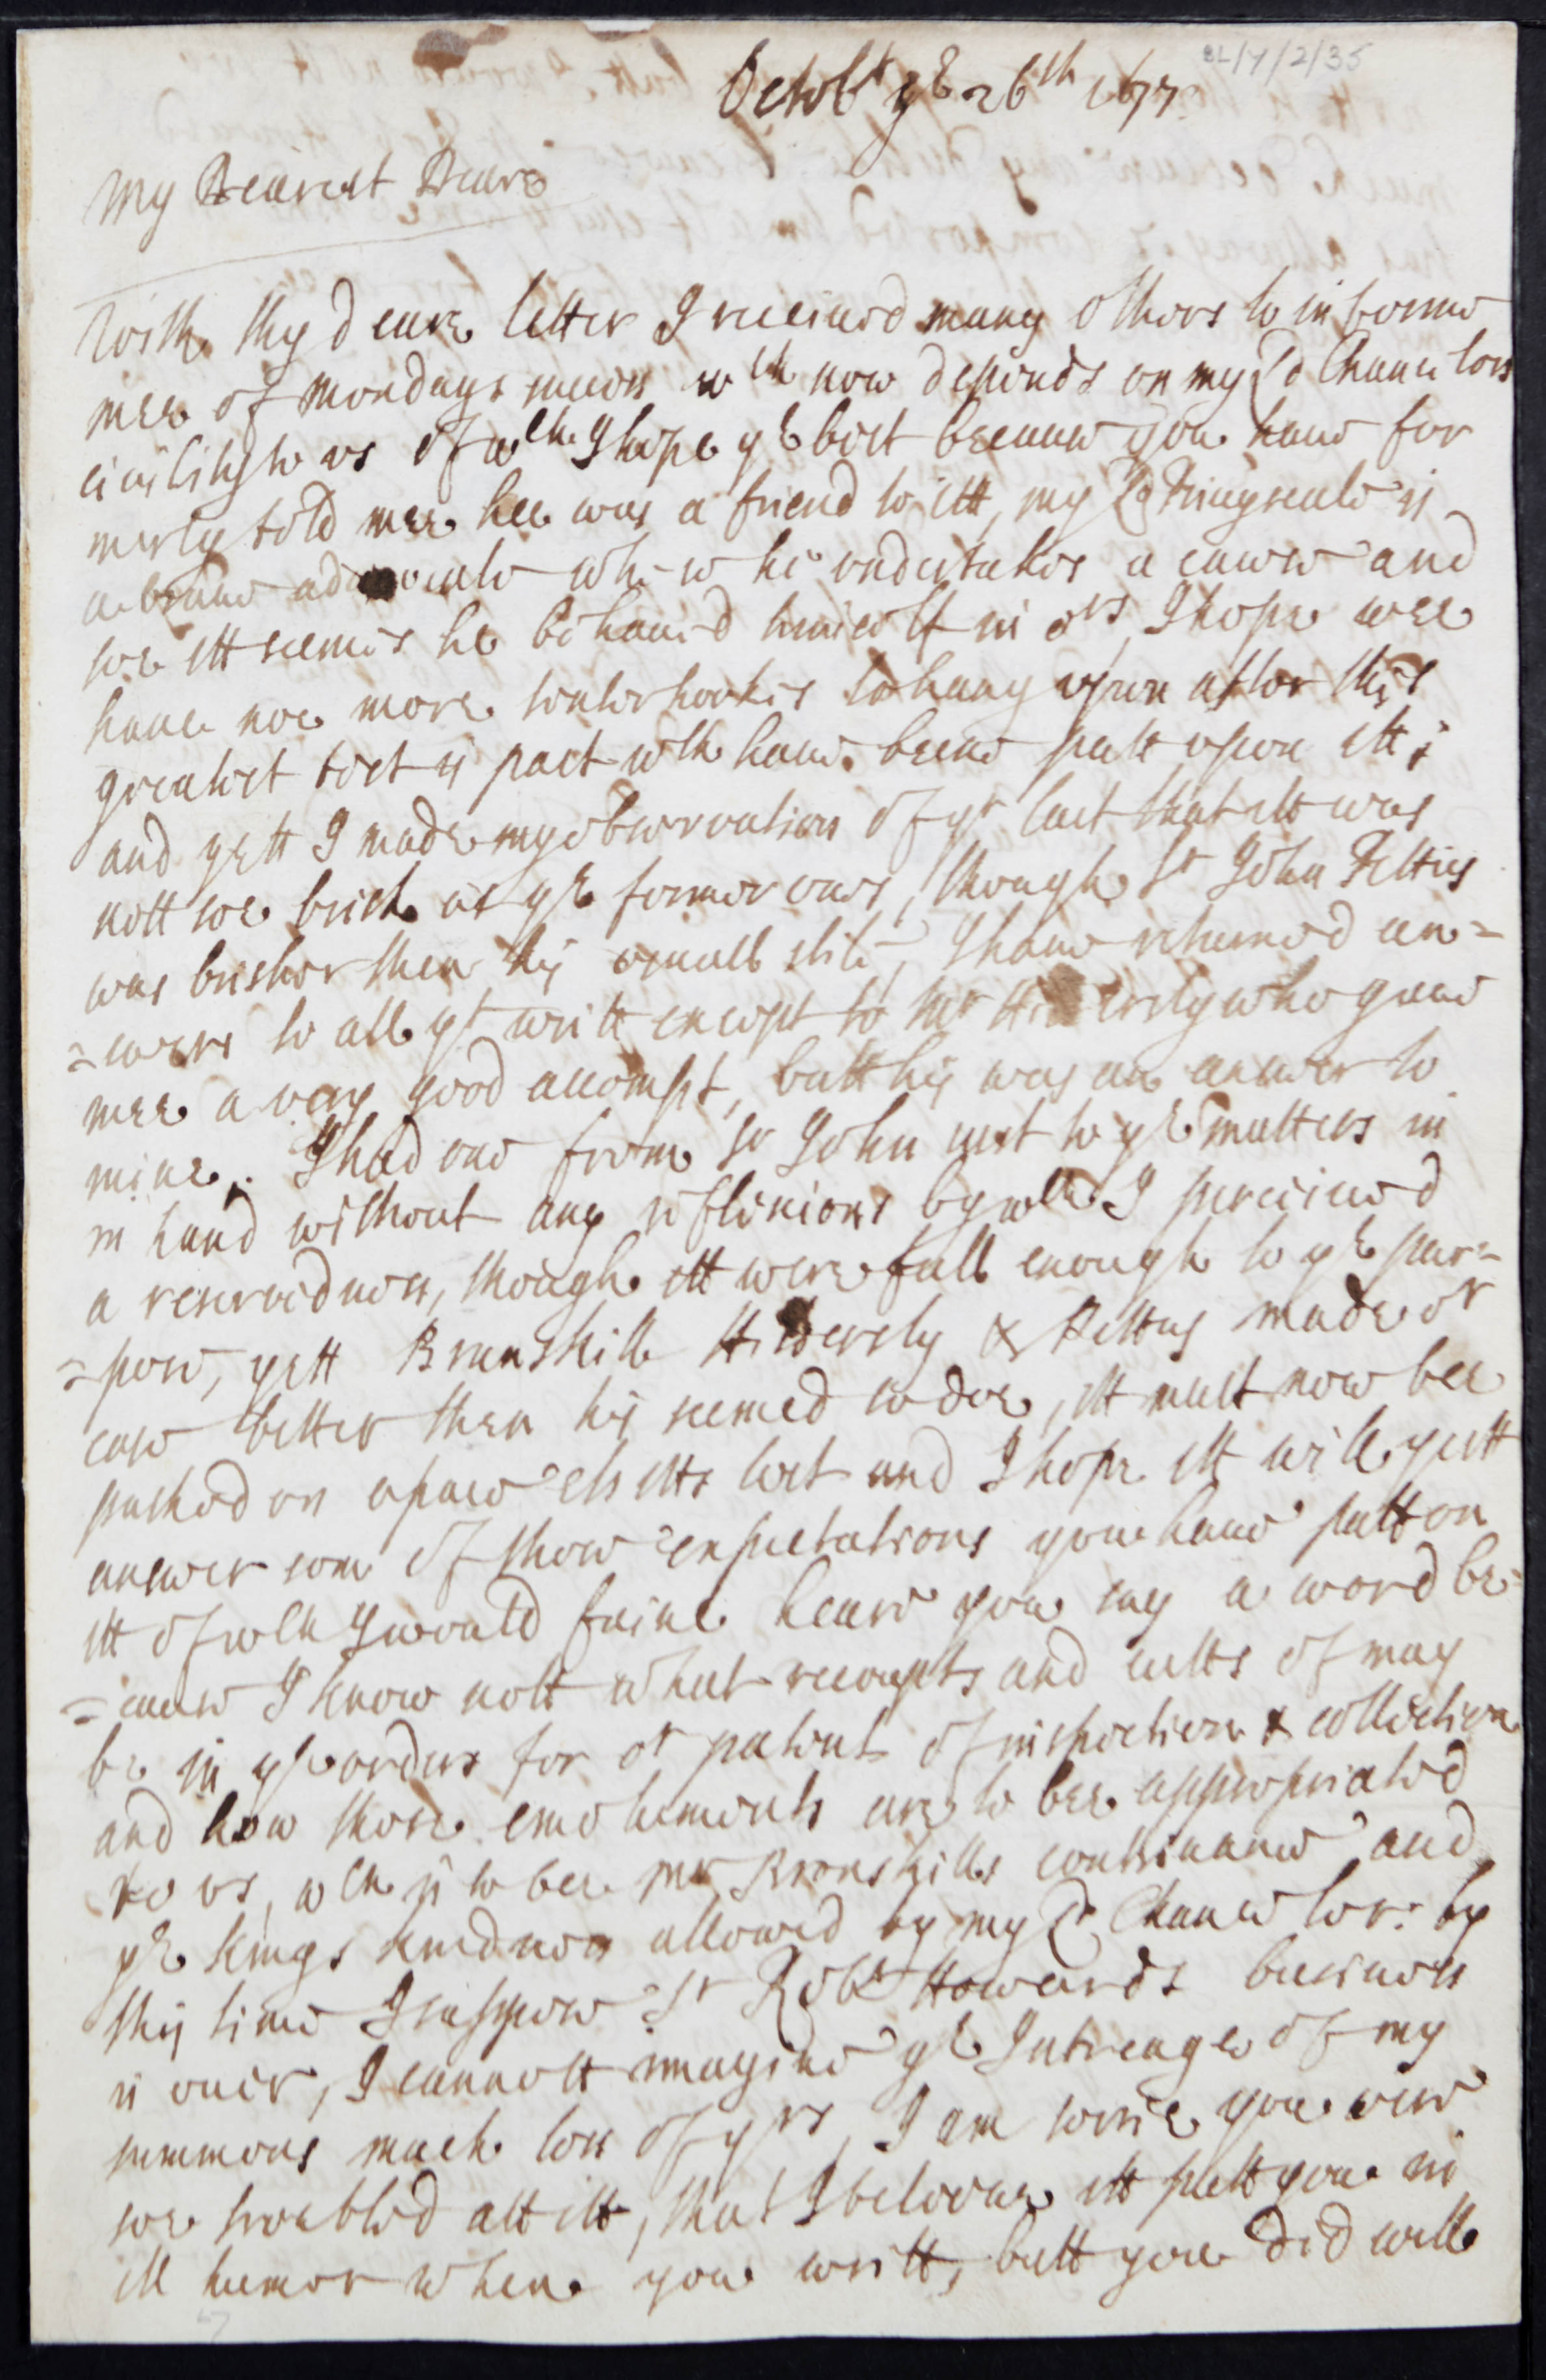 BL/Y/2/35
Octobr ye 26th 1677
My Dearest Deare
With thy deare letter I received many others to informe
mee of Mondays success wch now depends on my Ld Chancelors
civility to us of wch I hope ye best because you have for
merly told mee hee was a friend to itt, my Ld Privy seale is
a brave advocate when he undertakes a cause and
soe itt seemes he behaved himselfe in ors, I hope wee
have noe more tenterhookes to hang upon after this
greatest test is past wch have beene putt upon itt;
and yett I made my observation of yr last that itt was
nott soe brisk as ye former ones, though Sr John Pettus
was brisker then his usuall stile, I have returned an=
=swers to all yt writt except to Mr who gave
mee a very good accompt, butt his was an answer to
mine. I had one from Sr John next to ye matters in
in hand without any reflexions by wch I perceived
a reservednes, though itt were full enough to ye pur=
=pose, yett Brunskill & Pettus made or
case better then his seemed to doe, itt must now bee
pushed on apace els itts lost and I hope itt will yett
answer som of those expectations you have putt on
itt of wch I would faine heare you say a word be=
=cause I know nott what receipts and cutts of may
be in ye orders for or patents of inspection & collection
and how those emoluments are to bee appropriated
to us, wch is to bee Mr Brunskills contrivance and
ye kings kindnes allowed by my Ld Chancelor: by
this time I suppose Sr Robt Howards business
is over, I cannott imagine ye Intreague of my
summons much less of yrs, I am sorrie you were
soe troubled att itt, that I beleeve itt putt you in
ill humor when you writt, butt you did well